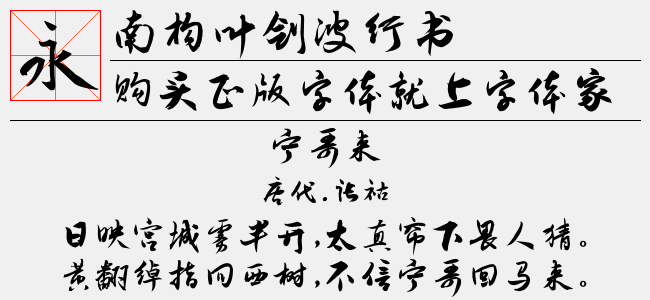 永
南构叶剑波行书
购买正版字体就上字体家
宁哥来
唐代.张祜
日映宫城雾半开,太真帘下畏人猜。
黄翻绰指向西树,不信宁哥回马来。